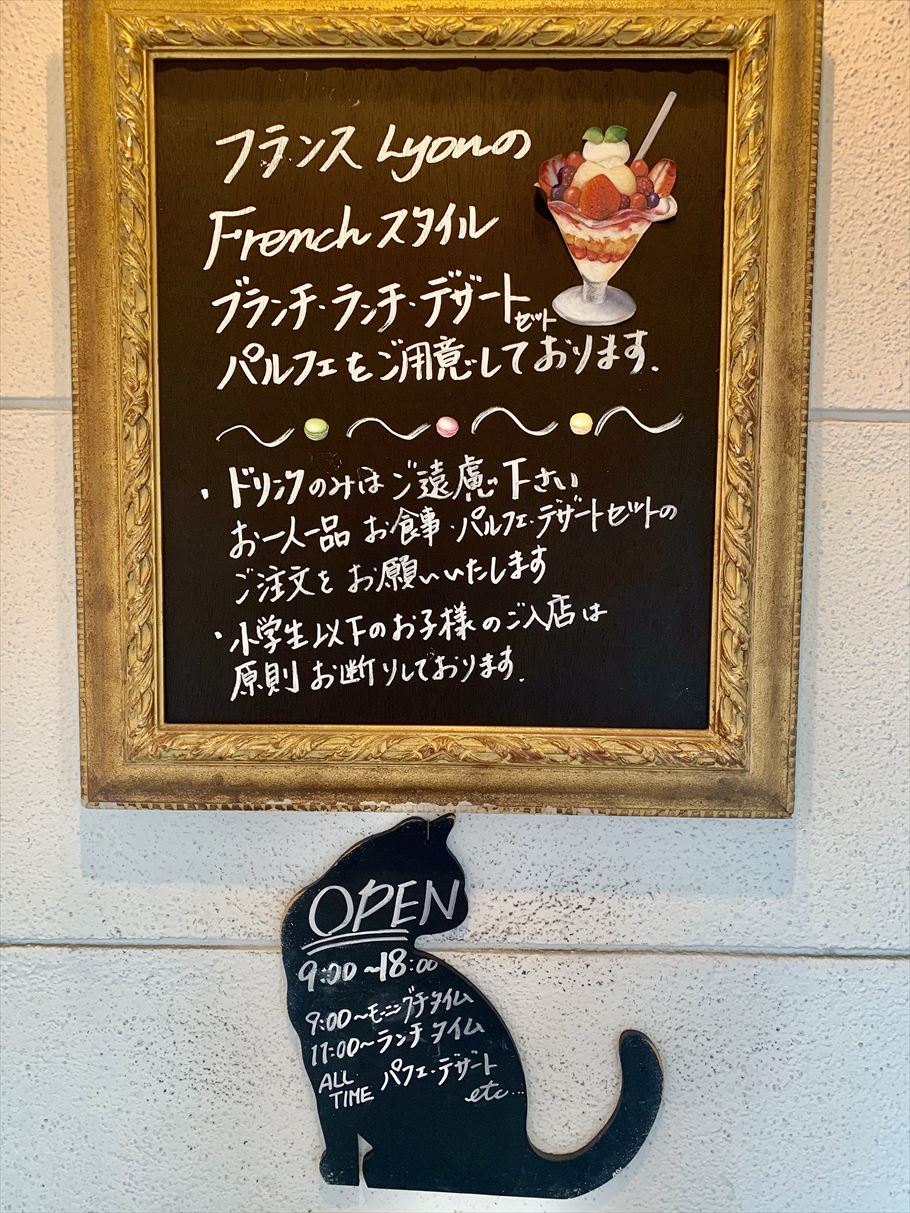 フランス Lyonの
Frenchスタイル
ブランチ・ランチ・デザートセット
パルフェをご用意しております.
・ドリンクのみはご遠慮下さい
お一人一品 お食事・パルフェ・デザートセットの
ご注文を お願いいたします
・小学生以下のお子様のご入店は
原則 お断りしております.
OPEN
9:00〜18:00
9:00〜モーニングタイム
11:00〜ランチタイム
ALL TIME パフェ・デザート
etc...